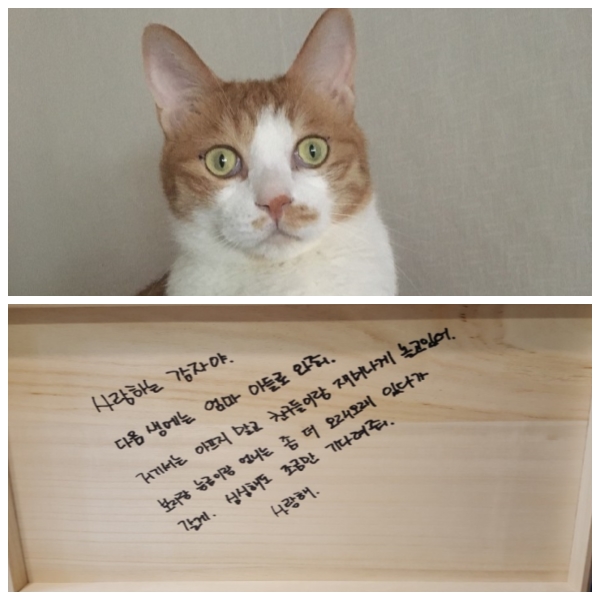 사랑하는 감자야.
다음 생에는 엄마 아들로 와줘.
거기서는 아프지 말고 친구들이랑 재미나게 놀고있어.
보리랑 언니는 좀 더 오래오래 있다가
갈게. 심심해도 조금만 기다려줘.
사랑해.